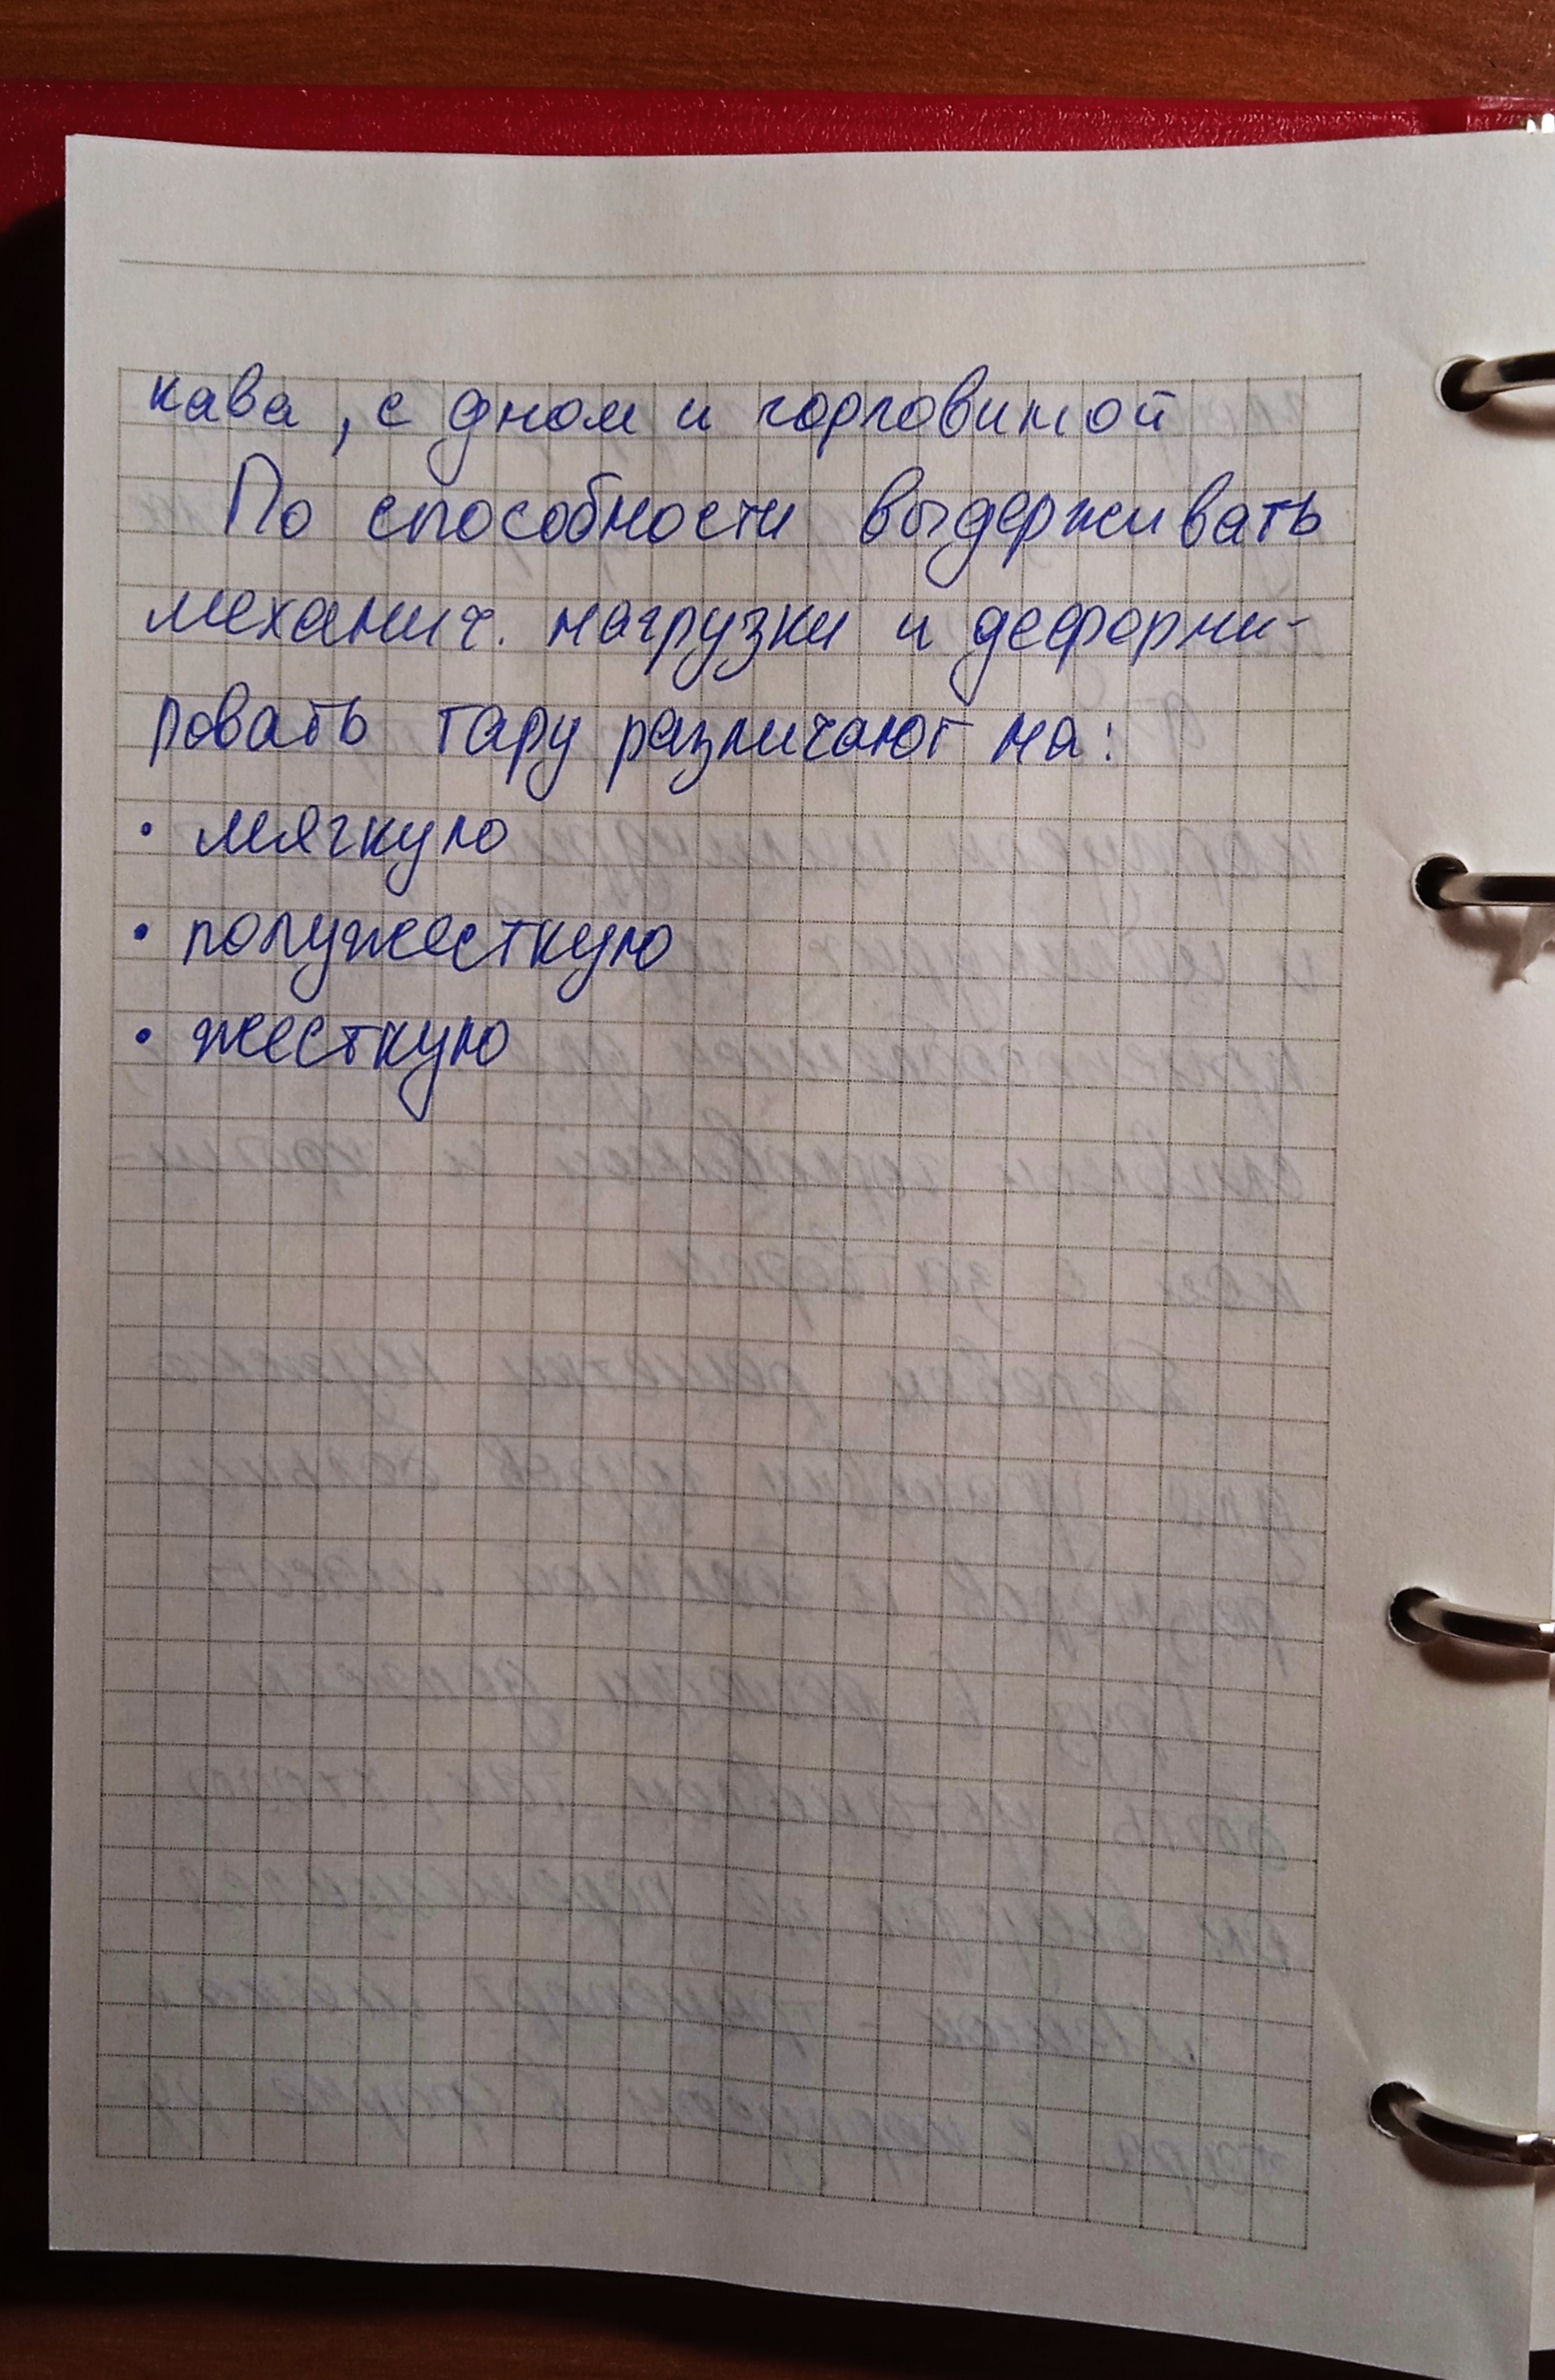 кава, с дном и горловиной
По способности выдерживать
механич. нагрузки и деформи-
ровать тару различают на:
• мягкую
• полужесткую
• жесткую